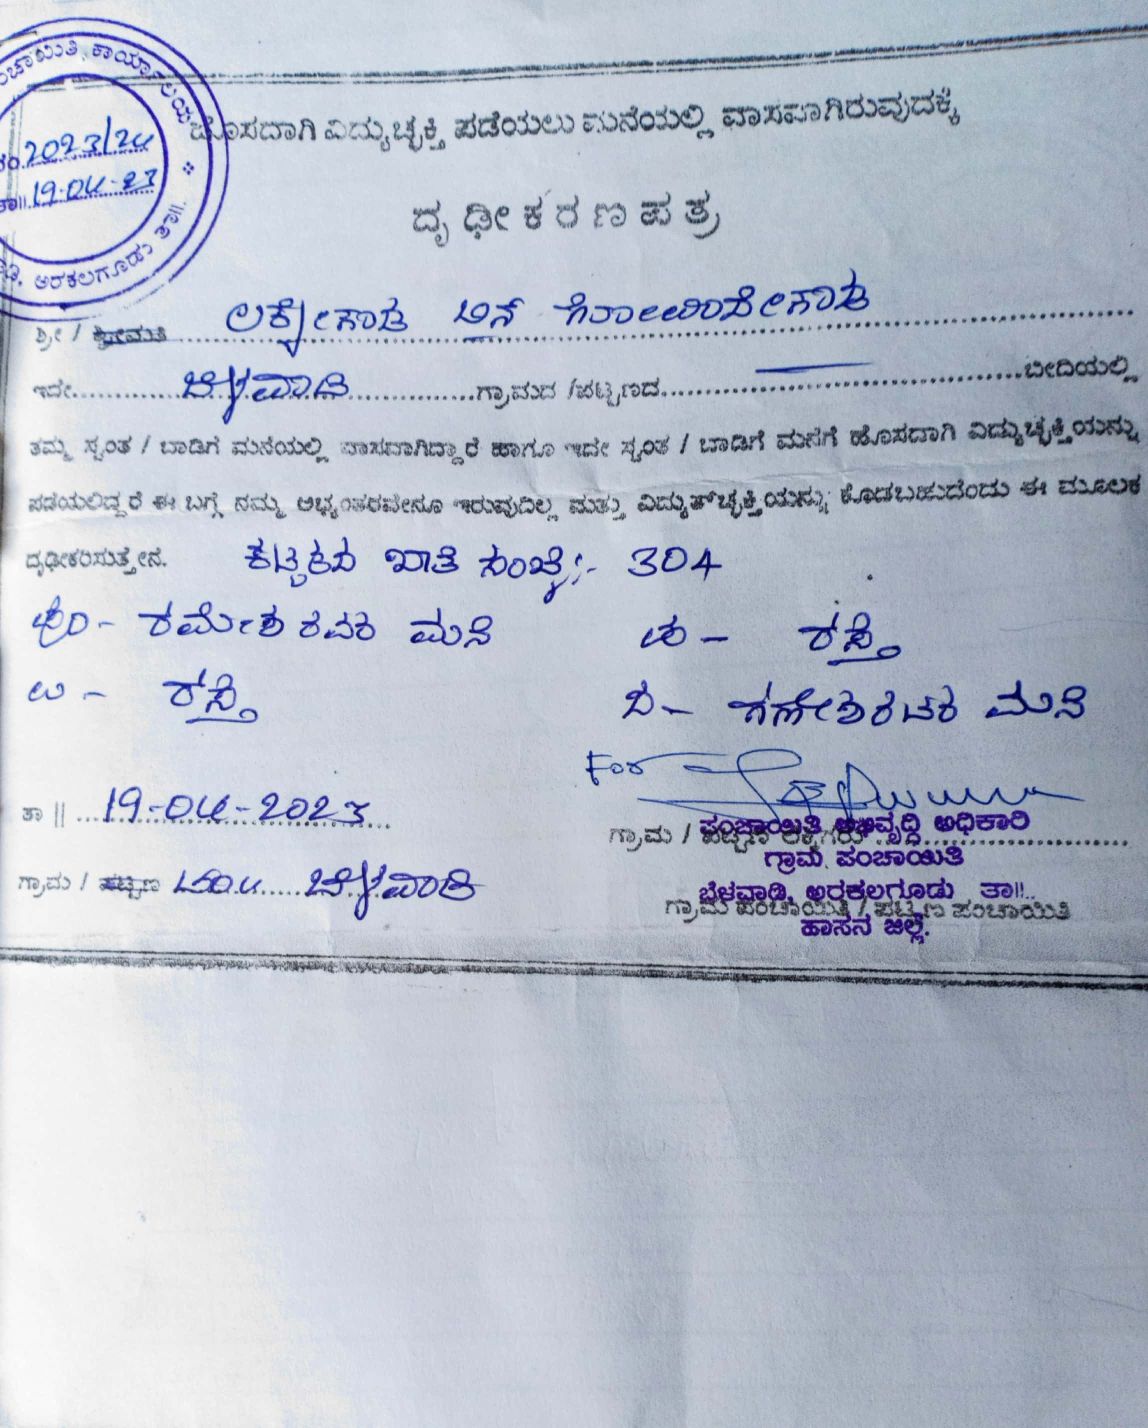 ಪಂಚಾಯಿತಿ ಕಾರ್ಯಾಲಯ
2023/24
ತಾ॥ 19-04-23
ಅರಕಲಗೂಡು ತಾ॥.
ಹೊಸದಾಗಿ ವಿದ್ಯುಚ್ಛಕ್ತಿ ಪಡೆಯಲು ಮನೆಯಲ್ಲಿ ವಾಸವಾಗಿರುವುದಕ್ಕೆ
ದೃಢೀಕರಣಪತ್ರ
ಶ್ರೀ / ಶ್ರೀಮತಿ ಲಕ್ಷ್ಮೇಗೌಡ ಬಿನ್
ಇದೇ ಬೆಳವಾಡಿ ಗ್ರಾಮದ /ಪಟ್ಟಣದ ಬೀದಿಯಲ್ಲಿ
ತಮ್ಮ ಸ್ವಂತ / ಬಾಡಿಗೆ ಮನೆಯಲ್ಲಿ ವಾಸವಾಗಿದ್ದಾರೆ ಹಾಗೂ ಇದೇ ಸ್ವಂತ / ಬಾಡಿಗೆ ಮನೆಗೆ ಹೊಸದಾಗಿ ವಿದ್ಯುಚ್ಛಕ್ತಿಯನ್ನು
ಪಡೆಯಲಿದ್ದರೆ ಈ ಬಗ್ಗೆ ನಮ್ಮ ಅಭ್ಯಂತರವೇನೂ ಇರುವುದಿಲ್ಲ ಮತ್ತು ವಿದ್ಯುತ್‌ಚ್ಛಕ್ತಿಯನ್ನು ಕೊಡಬಹುದೆಂದು ಈ ಮೂಲಕ
ದೃಢೀಕರಿಸುತ್ತೇನೆ. ಕಟ್ಟಕದ ಖಾತೆ ಸಂಖ್ಯೆ:- 304
ಪೂ - ರಮೇಶರವರ ಮನೆ ಪ - ರಸ್ತೆ
ಉ - ರಸ್ತೆ ದ - ಗಣೇಶರವರ ಮನೆ
For
ತಾ || 19-04-2023
ಗ್ರಾಮ / ಪಟ್ಟಣ
ಪಂಚಾಯಿತಿ ಅಭಿವೃದ್ಧಿ ಅಧಿಕಾರಿ
ಗ್ರಾಮ ಪಂಚಾಯಿತಿ
ಗ್ರಾಮ / ಪಟ್ಟಣ ಬೆಳವಾಡಿ
ಬೆಳವಾಡಿ, ಅರಕಲಗೂಡು ತಾ॥.
ಗ್ರಾಮ ಪಂಚಾಯಿತಿ / ಪಟ್ಟಣ ಪಂಚಾಯಿತಿ
ಹಾಸನ ಜಿಲ್ಲೆ.